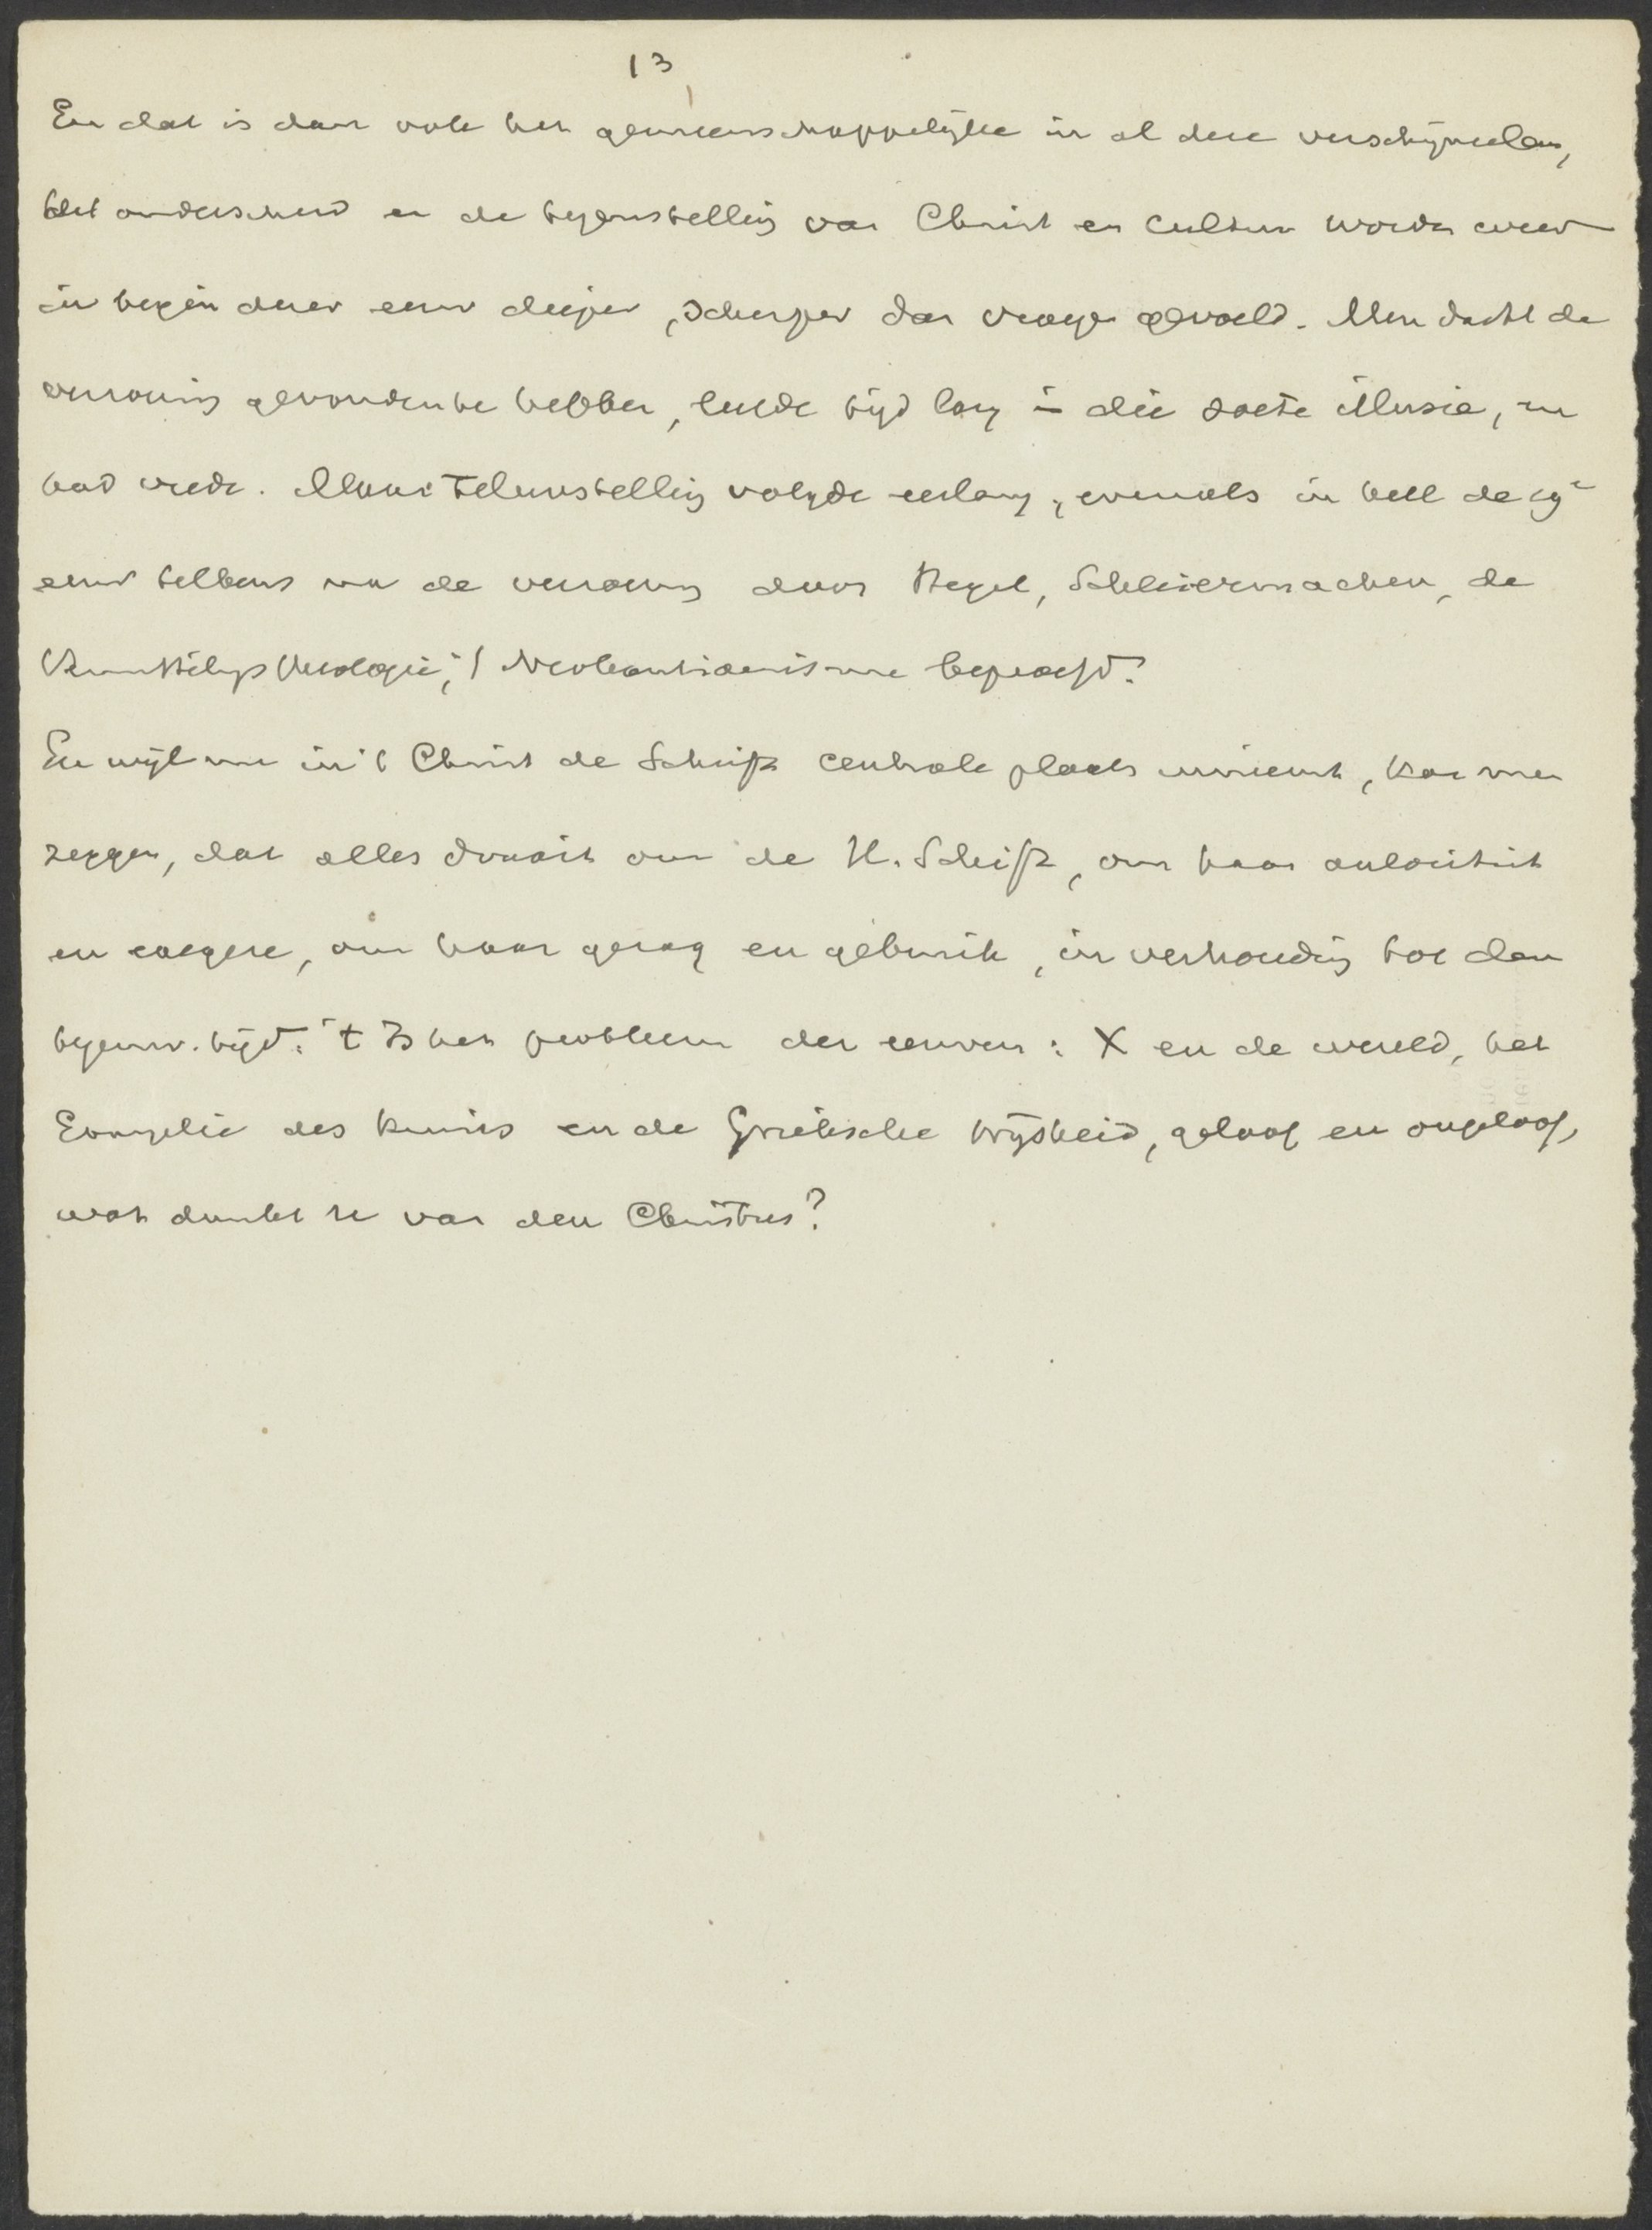 13
En dat is dan ook het gemeenschappelijke in al deze verschijnselen,
het onderscheid en de tegenstelling van Christ en Cultuur worden weer
in begin dezer eeuw dieper, scherper dan vroeger gevoeld. Men dacht de
verzoening gevonden te hebben, leefde tijd lang in die zoete illusie, en
had vrede. Maar teleurstelling volgde eerlang, evenals in heel de 19e
eeuw telkens na de verzoening door Hegel, Schleiermacher, de
Vermittlgs theologie, 't Neokantianisme beproefd.
En wijl nu in 't Christ de Schrift centrale plaats inneemt, kan men
zeggen, dat alles draait om de H. Schrift, om haar autoriteit
en exegese, om haar gezag en gebruik, in verhouding tot den
tegenw. tijd. 't Is het probleem der eeuwen: X en de wereld, het
Evangelie des kruises en de Grieksche wijsheid, geloof en ongeloof,
wat dunkt u van den Christus?